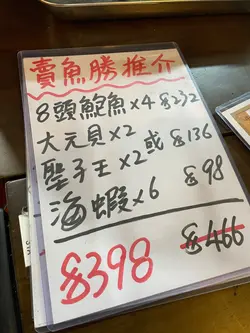 賣魚勝推介
8頭鮑魚×4 $232
大元貝×2
或 $136
聖子王×2
海蝦×6 $98
$398 $466